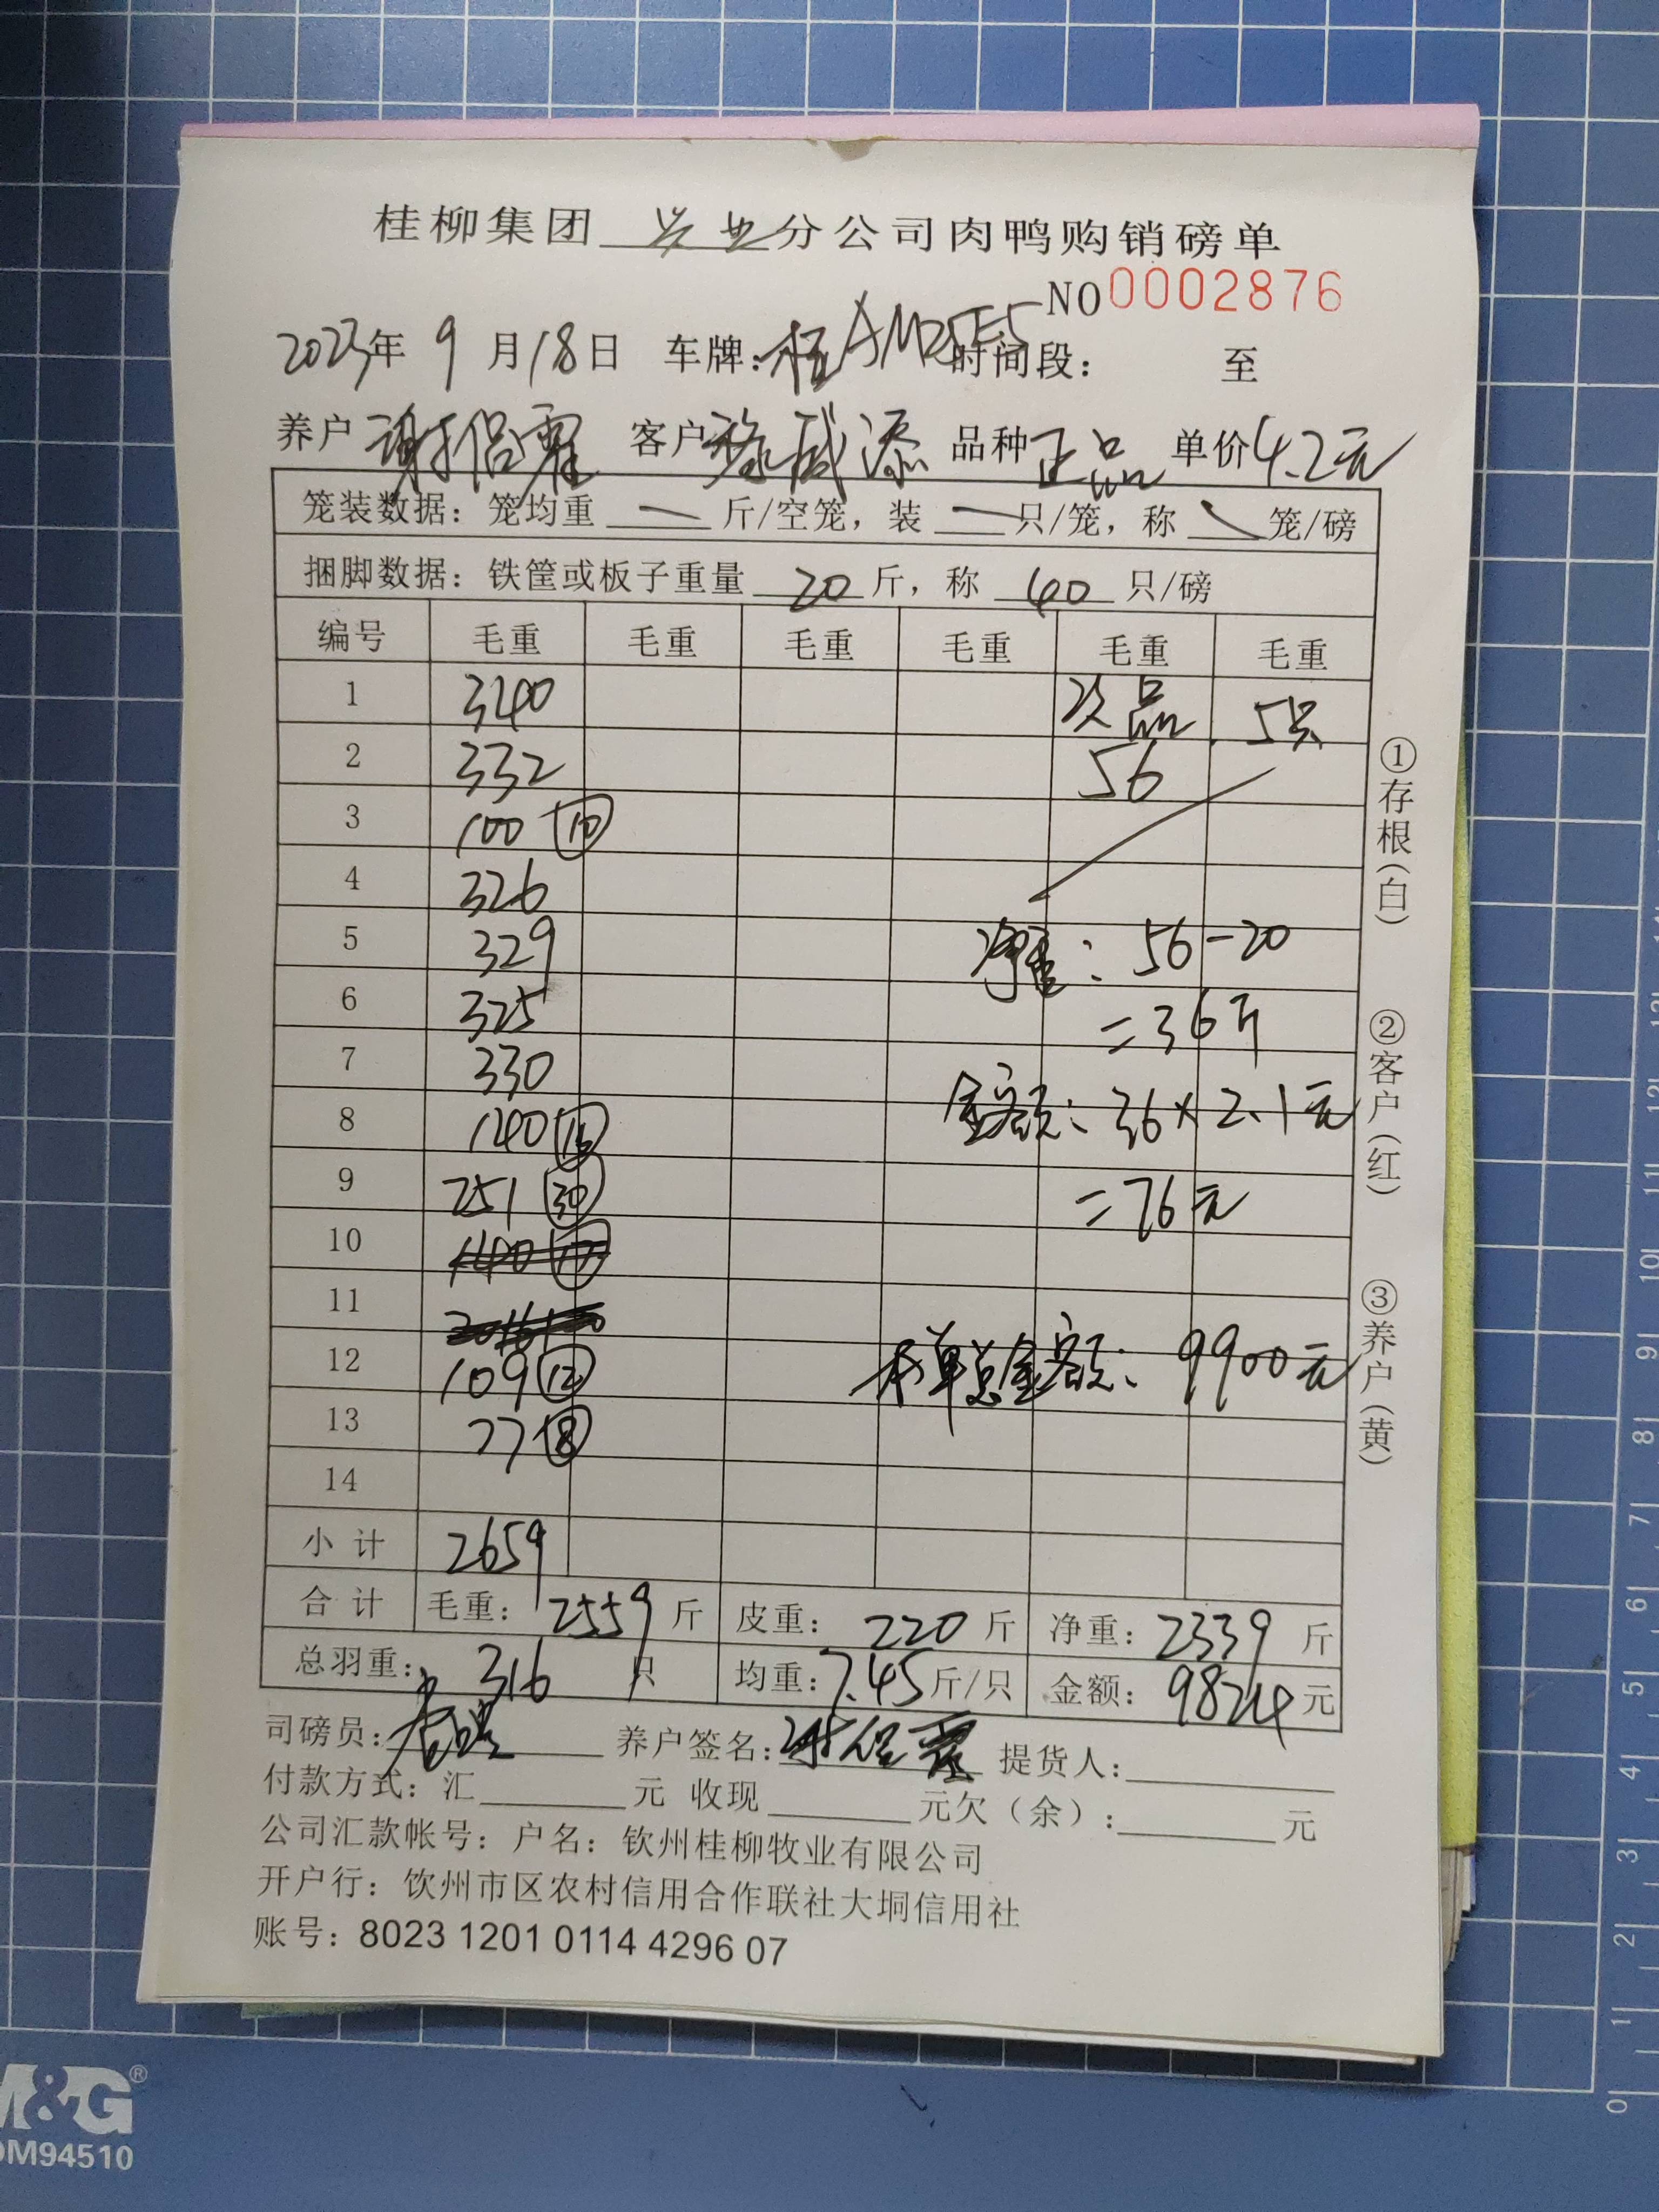 桂柳集团 兴业 分公司肉鸭购销磅单
NO 0002876
2023年 9 月 18 日 车牌: 桂AM25E5 时间段: 至
养户 谢侣霏 客户 威添 品种 正品 单价 4.2元
笼装数据: 笼均重 — 斤/空笼, 装 — 只/笼, 称 — 笼/磅
捆脚数据: 铁筐或板子重量 20 斤, 称 40 只/磅
编号 毛重 毛重 毛重 毛重 毛重 毛重
1 340 次品 5只
2 332 56
3 100 ⑩
4 326
5 329 净重: 56-20
6 325 =36斤
7 330
8 140 金额: 36×2.1元
9 251 ㉚ =76元
10
11
12 109 ⑫ 本单总金额: 9900元
13 77 ⑧
14
小计 2659
合计 毛重: 2559 斤 皮重: 220 斤 净重: 2339 斤
总羽重: 316 只 均重: 7.45 斤/只 金额: 9824 元
司磅员: 养户签名: 提货人:
付款方式: 汇 元 收现 元欠(余): 元
公司汇款帐号: 户名: 钦州桂柳牧业有限公司
开户行: 饮州市区农村信用合作联社大垌信用社
账号: 8023 1201 0114 4296 07
①存根(白)
②客户(红)
③养户(黄)
M&G®
DM94510
0 1 2 3 4 5 6 7 8 9 10 11 12 13